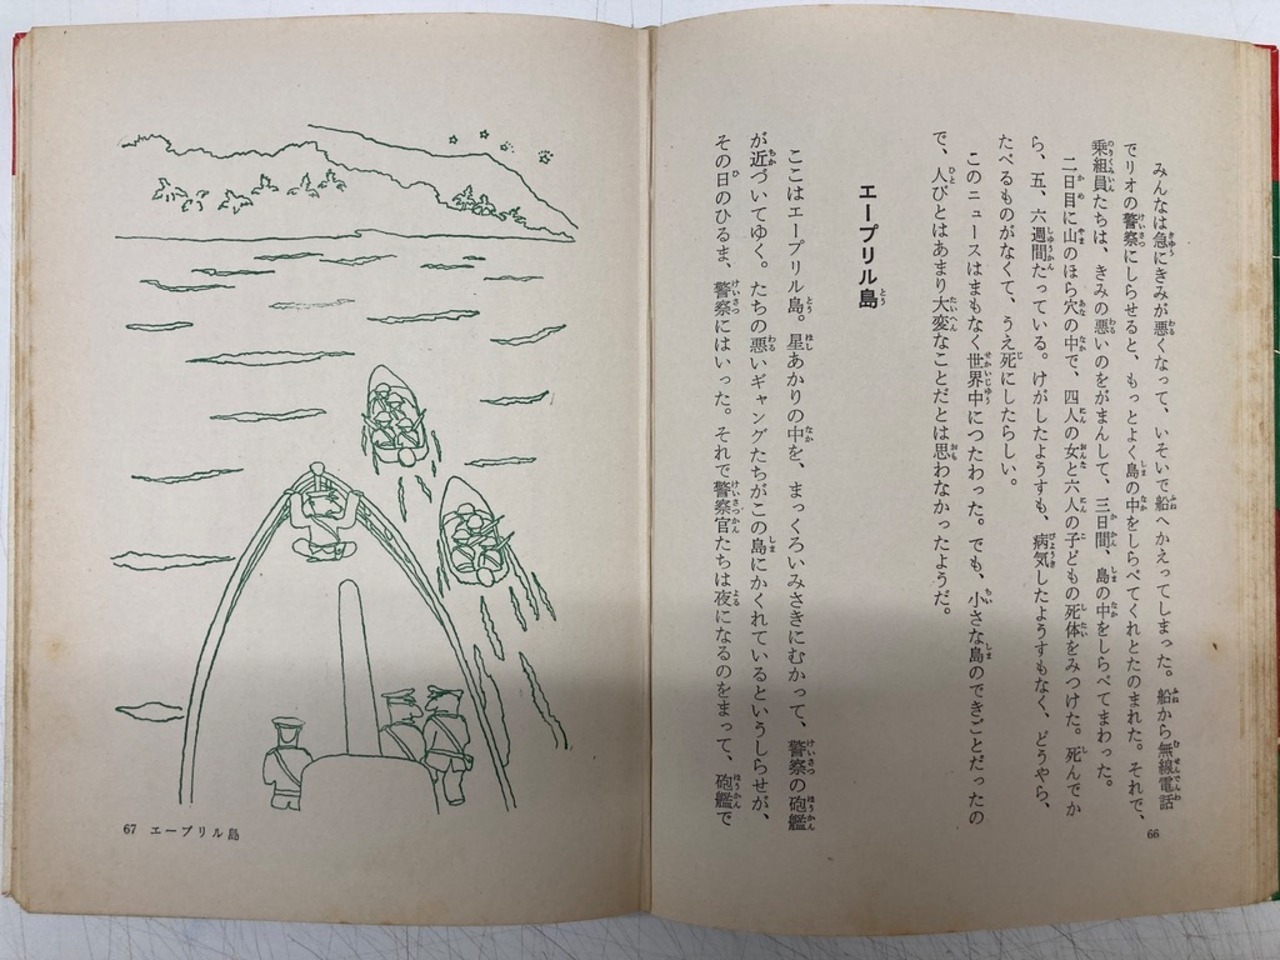 みんなは急にきみが悪くなって、いそいで船へかえってしまった。船から無線電話
でリオの警察にしらせると、もっとよく島の中をしらべてくれとたのまれた。それで、
乗組員たちは、きみの悪いのをがまんして、三日間、島の中をしらべてまわった。
二日目に山のほら穴の中で、四人の女と六人の子どもの死体をみつけた。死んでか
ら、五、六週間たっている。けがしたようすも、病気したようすもなく、どうやら、
たべるものがなくて、うえ死にしたらしい。
このニュースはまもなく世界中につたわった。でも、小さな島のできごとだったの
で、人びとはあまり大変なことだとは思わなかったようだ。
エープリル島
ここはエープリル島。星あかりの中を、まっくろいみさきにむかって、警察の砲艦
が近づいてゆく。たちの悪いギャングたちがこの島にかくれているというしらせが、
その日のひるま、警察にはいった。それで警察官たちは夜になるのをまって、砲艦で
66
67 エープリル島